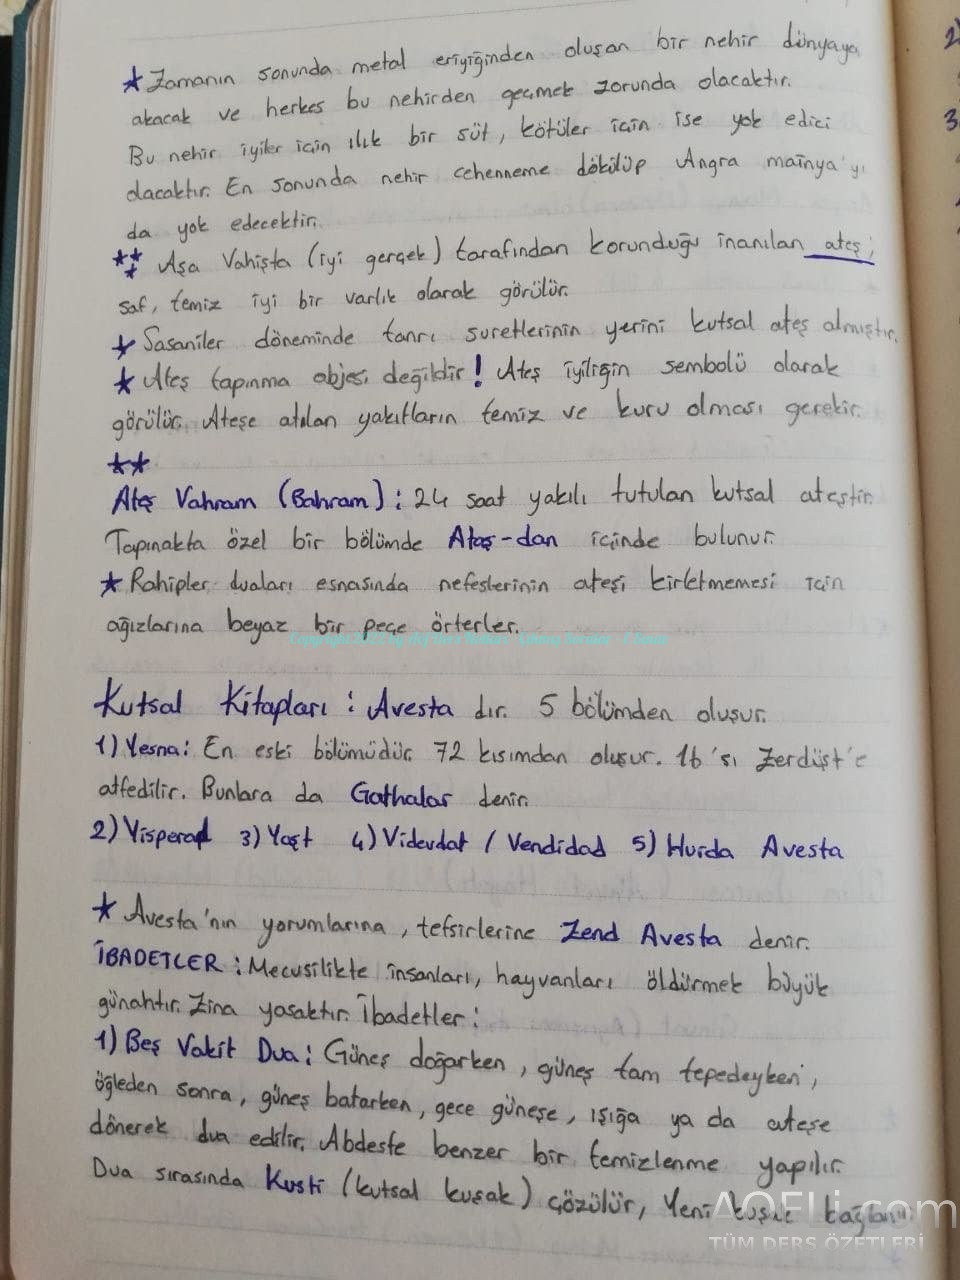 ★ Zamanın sonunda metal eriyiğinden oluşan bir nehir dünyaya
akacak ve herkes bu nehirden geçmek zorunda olacaktır.
Bu nehir iyiler için ılık bir süt, kötüler için ise yok edici
olacaktır. En sonunda nehir cehenneme dökülüp Angra mainya'yı
da yok edecektir.
★★★ Aşa Vahişta (iyi gerçek) tarafından korunduğu inanılan ateş;
saf, temiz iyi bir varlık olarak görülür.
★ Sasaniler döneminde tanrı suretlerinin yerini kutsal ateş almıştır.
★ Ateş tapınma objesi değildir! Ateş iyiliğin sembolü olarak
görülür. Ateşe atılan yakıtların temiz ve kuru olması gerekir.
★★
Ateş Vahram (Bahram): 24 saat yakılı tutulan kutsal ateştir.
Tapınakta özel bir bölümde Ataş-dan içinde bulunur.
★ Rahipler duaları esnasında nefeslerinin ateşi kirletmemesi için
ağızlarına beyaz bir peçe örterler.
Kutsal Kitapları: Avesta dır. 5 bölümden oluşur.
1) Yesna: En eski bölümüdür. 72 kısımdan oluşur. 16'sı Zerdüşt'e
atfedilir. Bunlara da Gathalar denir.
2) Visperad 3) Yaşt 4) Videvdat / Vendidad 5) Hurda Avesta
★ Avesta'nın yorumlarına, tefsirlerine Zend Avesta denir.
İBADETLER: Mecusilikte insanları, hayvanları öldürmek büyük
günahtır. Zina yasaktır. İbadetler:
1) Beş Vakit Dua: Güneş doğarken, güneş tam tepedeyken,
öğleden sonra, güneş batarken, gece güneşe, ışığa ya da ateşe
dönerek dua edilir. Abdeste benzer bir temizlenme yapılır.
Dua sırasında Kusti (kutsal kuşak) çözülür, Yeni kuşak bağlanır.
AOFLi.com
TÜM DERS ÖZETLERİ
2)
3